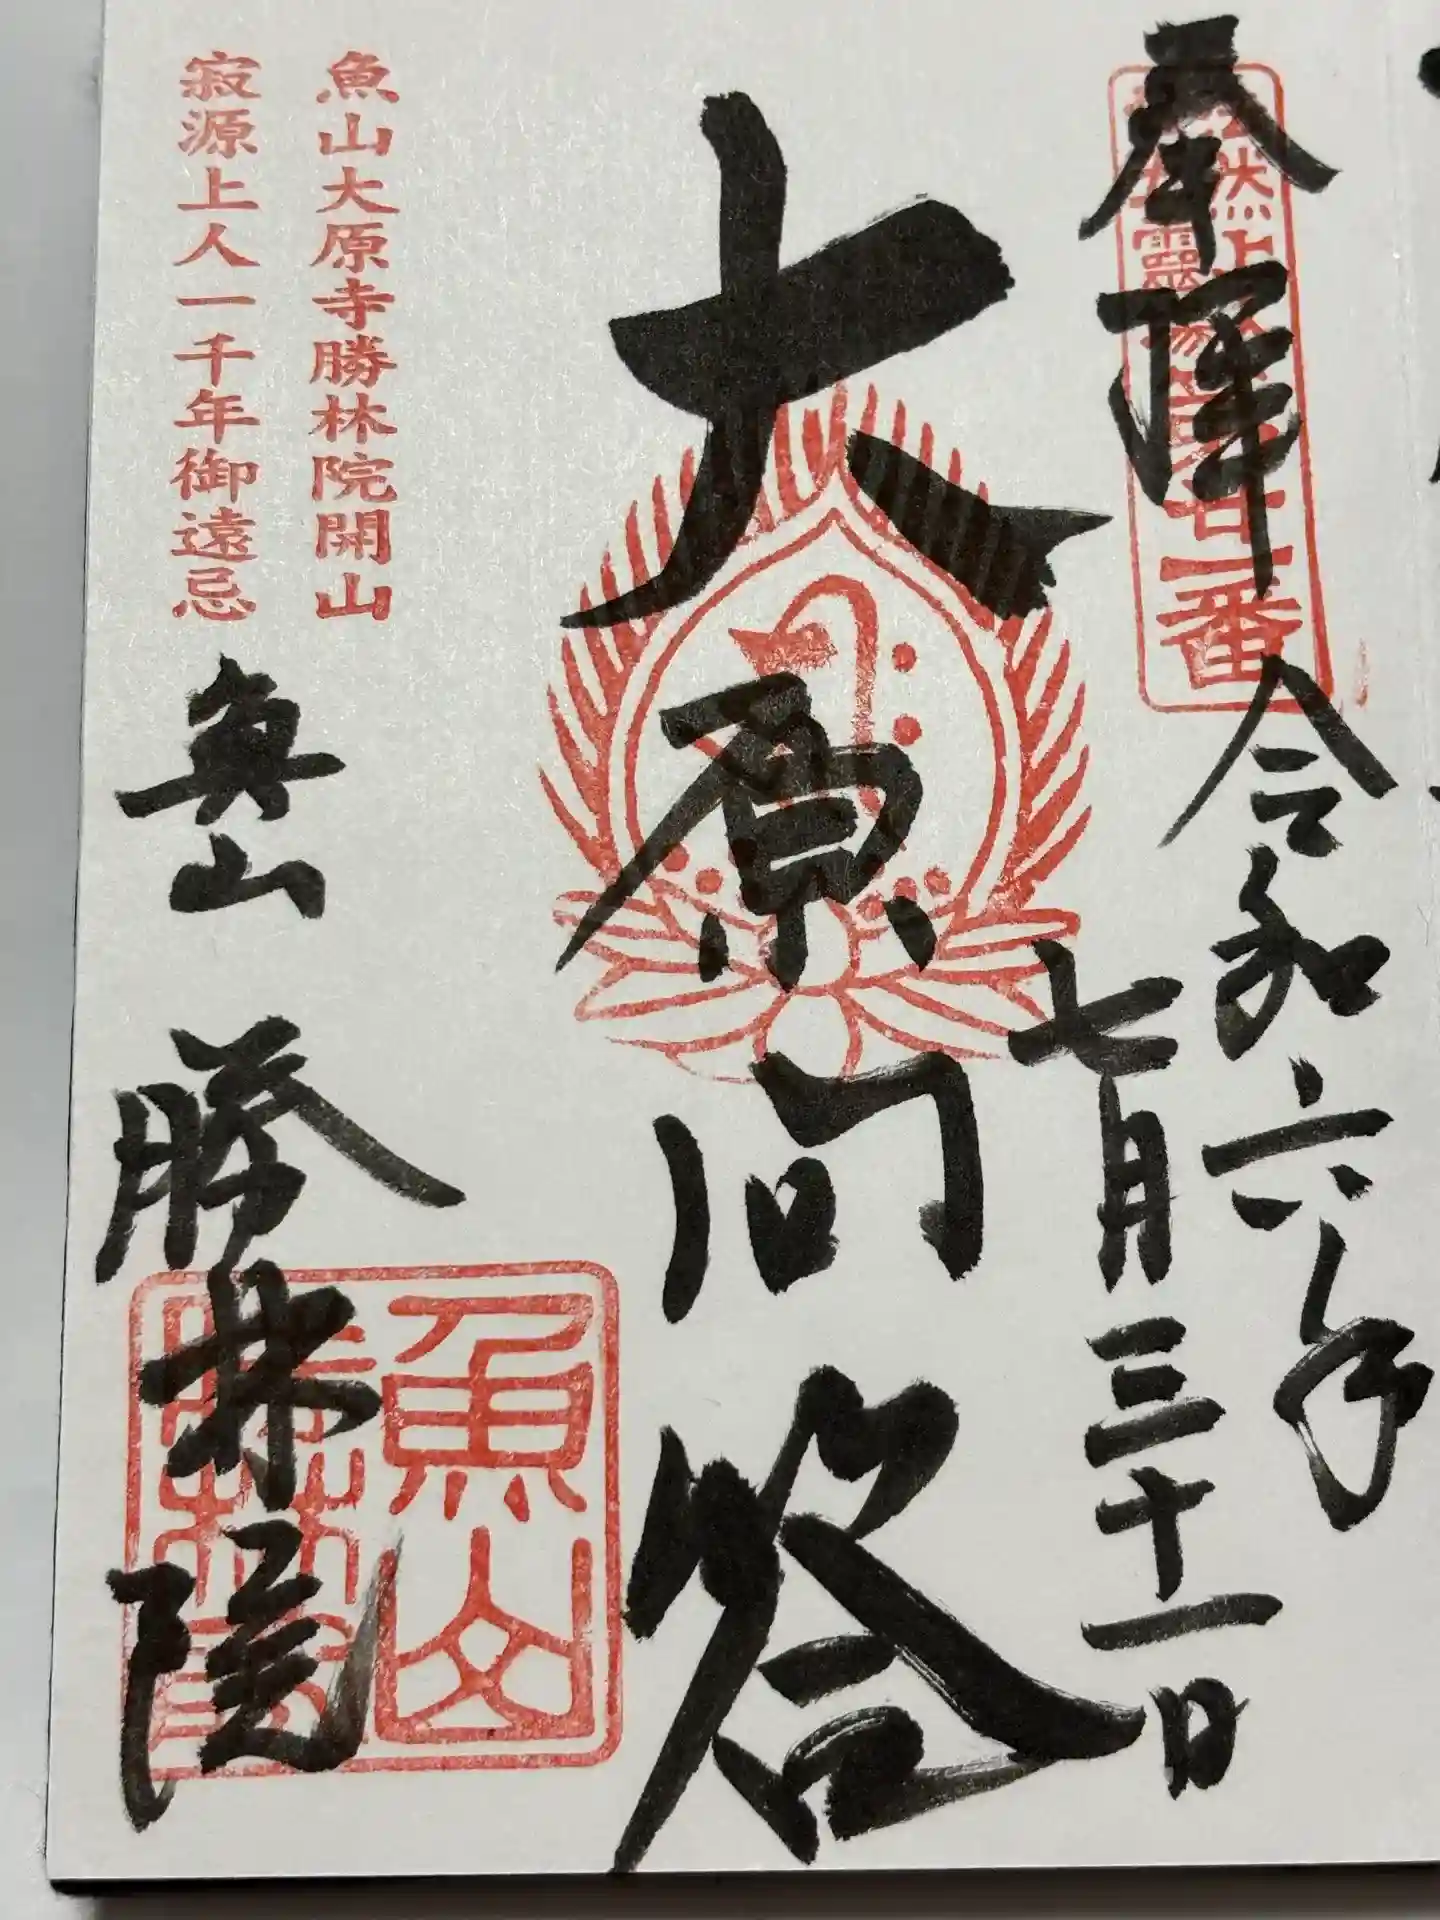 奉拝
法然上人
霊場第廿一番
令和六年
七月三十一日
大原問答
魚山大原寺勝林院開山
寂源上人一千年御遠忌
魚山
勝林院
魚山
勝林院